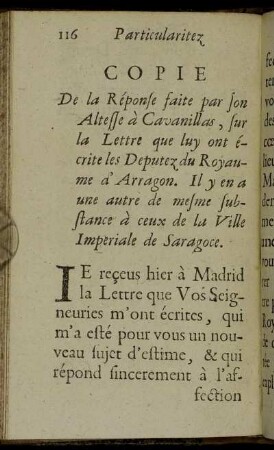 116 Particularitez
COPIE
De la Réponse faite par son
Altesse à Cavanillas, sur
la Lettre que luy ont é-
crite les Deputez du Royau-
me d'Arragon. Il y en a
une autre de mesme sub-
stance à ceux de la Ville
Imperiale de Saragoce.
JE reçeus hier à Madrid
la Lettre que Vos Seig-
neuries m'ont écrites, qui
m'a esté pour vous un nou-
veau sujet d'estime, & qui
répond sincerement à l'af-
fection